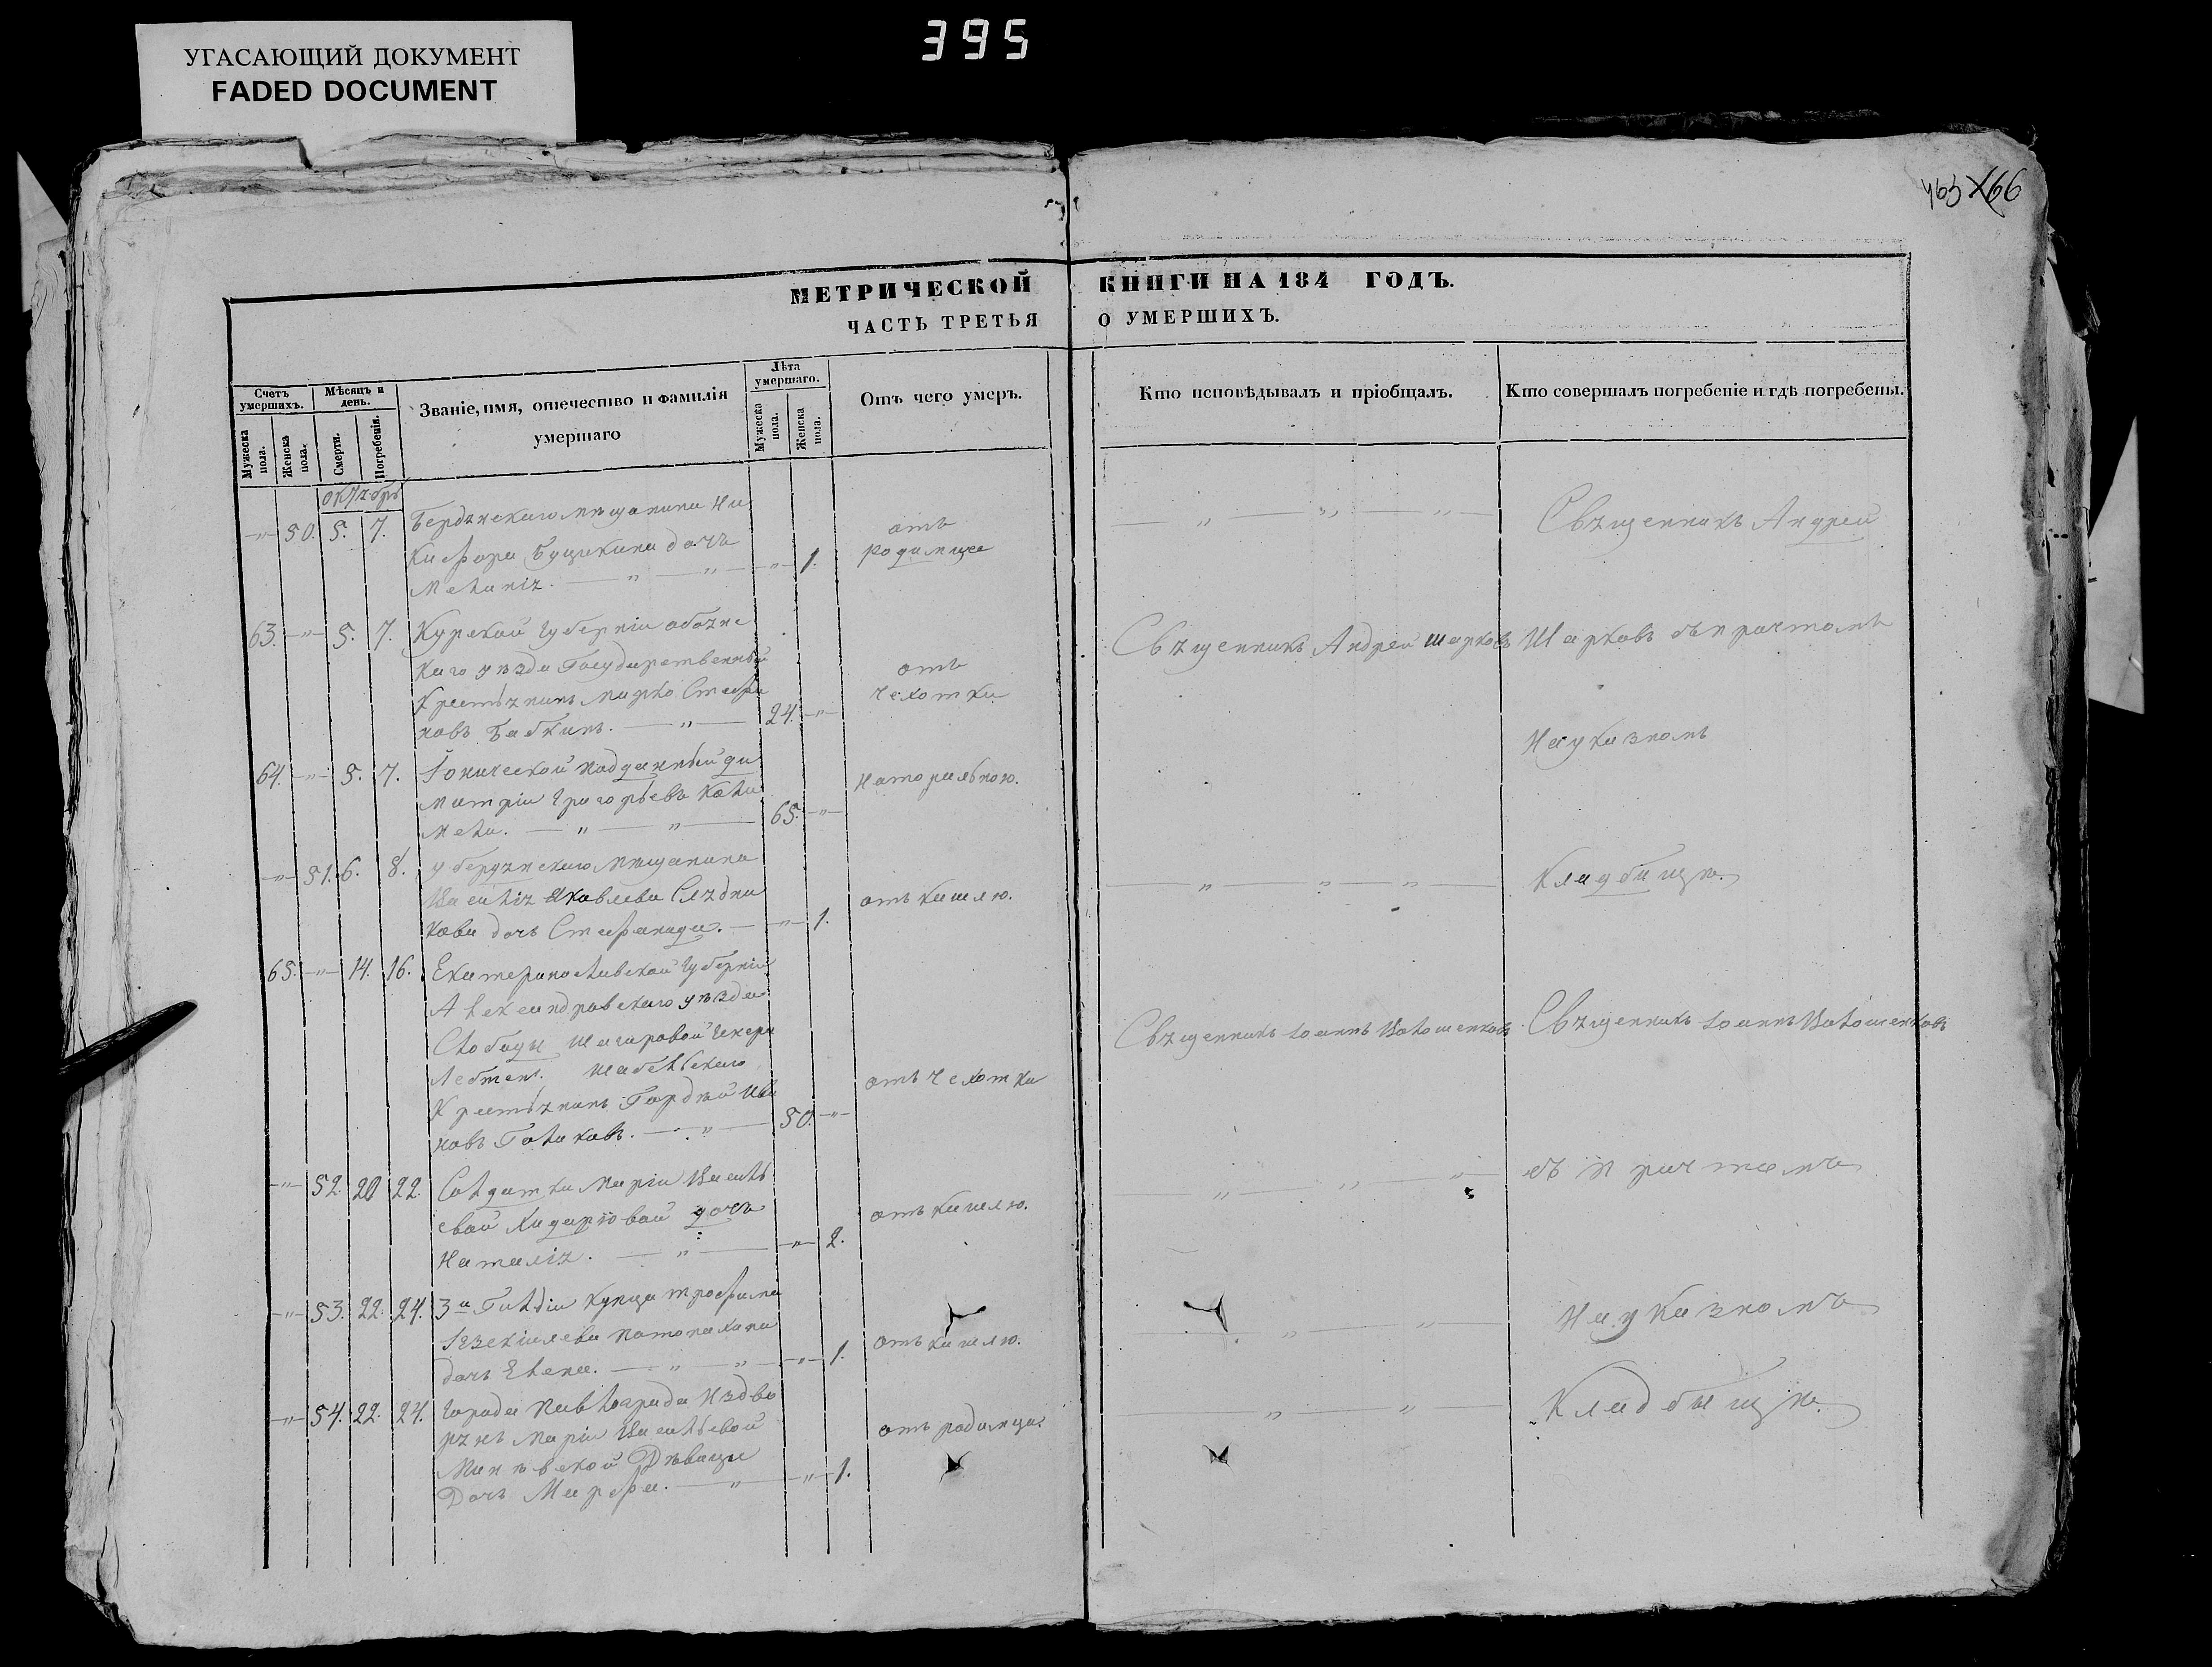 395
УГАСАЮЩИЙ ДОКУМЕНТ
FADED DOCUMENT
463 466
МЕТРИЧЕСКОЙ КНИГИ НА 184 ГОДЪ.
ЧАСТЬ ТРЕТЬЯ О УМЕРШИХЪ.
Счетъ умершихъ.
Мужеска пола.
Женска пола.
Мѣсяцъ и день.
Смерти.
Погребенія.
Званіе, имя, отечество и фамилія умершаго
Лѣта умершаго.
Мужеска пола.
Женска пола.
Отъ чего умеръ.
Кто исповѣдывалъ и пріобщалъ.
Кто совершалъ погребеніе и гдѣ погребены.
октябрь
50. 5. 7. Бердянскаго мѣщанина Ни
кифора Буцикина дочь
Меланія. 1.
отъ
родимца
Священникъ Андрей
63. 5. 7. Курской губерніи обоянс
каго уѣзда Государственный
Крестьянинъ Марко Стефа
новъ Бабкинъ. 24.
отъ
чехотки
Священникъ Андрей Шарковъ
Шарковъ съ причтомъ
64. 5. 7. Іонической подданный ди
митрій Григорьевъ
65.
наторальною.
На указномъ
51. 6. 8. бердянскаго мѣщанина
Василія Яковлева
кова дочь Стефанида. 1.
отъ кашлю.
Кладбищѣ.
65. 14. 16. Екатеринославской Губерніи
Александровскаго уѣзда
Слободы
Крестьянинъ Гордѣй Ива
новъ Голиковъ. 50.
отъ чехотки
Священникъ Іоаннъ Волошенковъ
Священникъ Іоаннъ Волошенковъ
52. 20 22. Солдатки Маріи Василь
евой дочь
Наталія. 2.
отъ кашлю.
съ причтомъ
53. 22. 24. 3й Гильдіи купца трофима
Іезекіилева
дочь Елена. 1.
отъ кашлю.
На указномъ
54. 22. 24. города Павлограда Изъ дво
рянъ Маріи Васильевой
Дѣвицы
Дочь Марфа. 1.
отъ родимца.
Кладбищѣ.